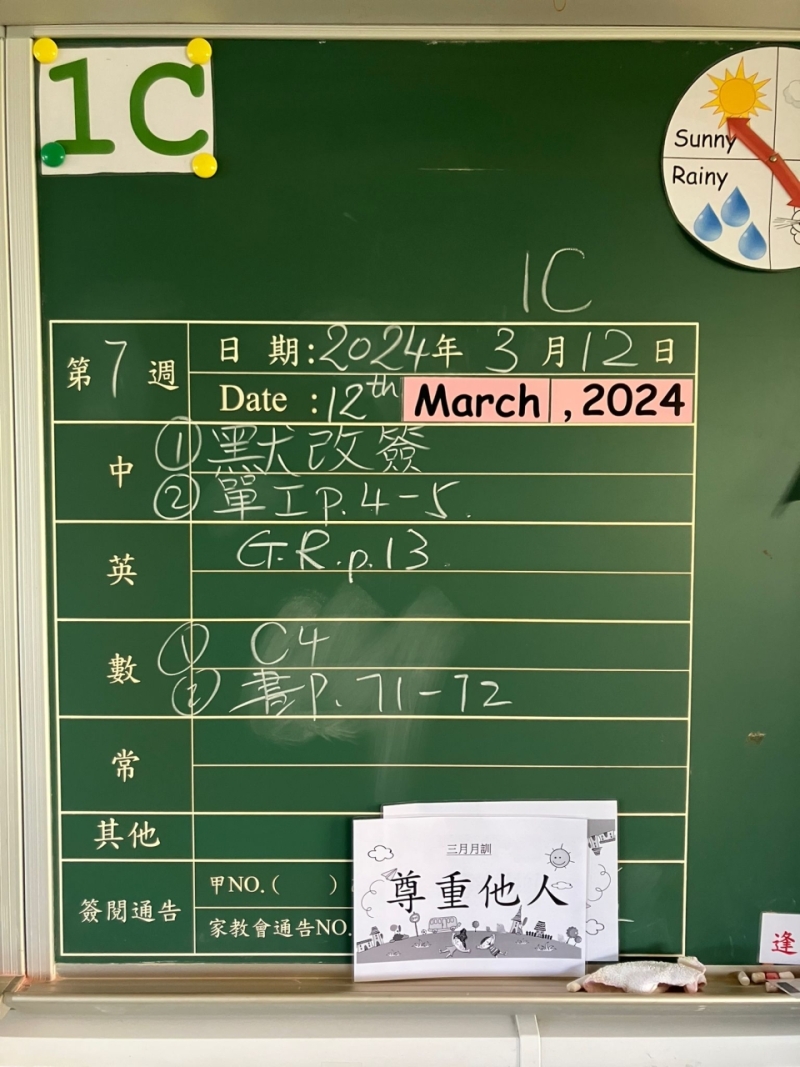 1C
Sunny
Rainy
1C
第7週
日期:2024年3月12日
Date :12th March, 2024
中
①默改簽
②單工p.4-5.
英
G.R.p.13.
數
① C4
② 書p.71-72
常
其他
簽閱通告
甲NO.( )
家教會通告NO.
三月月訓
尊重他人
逢